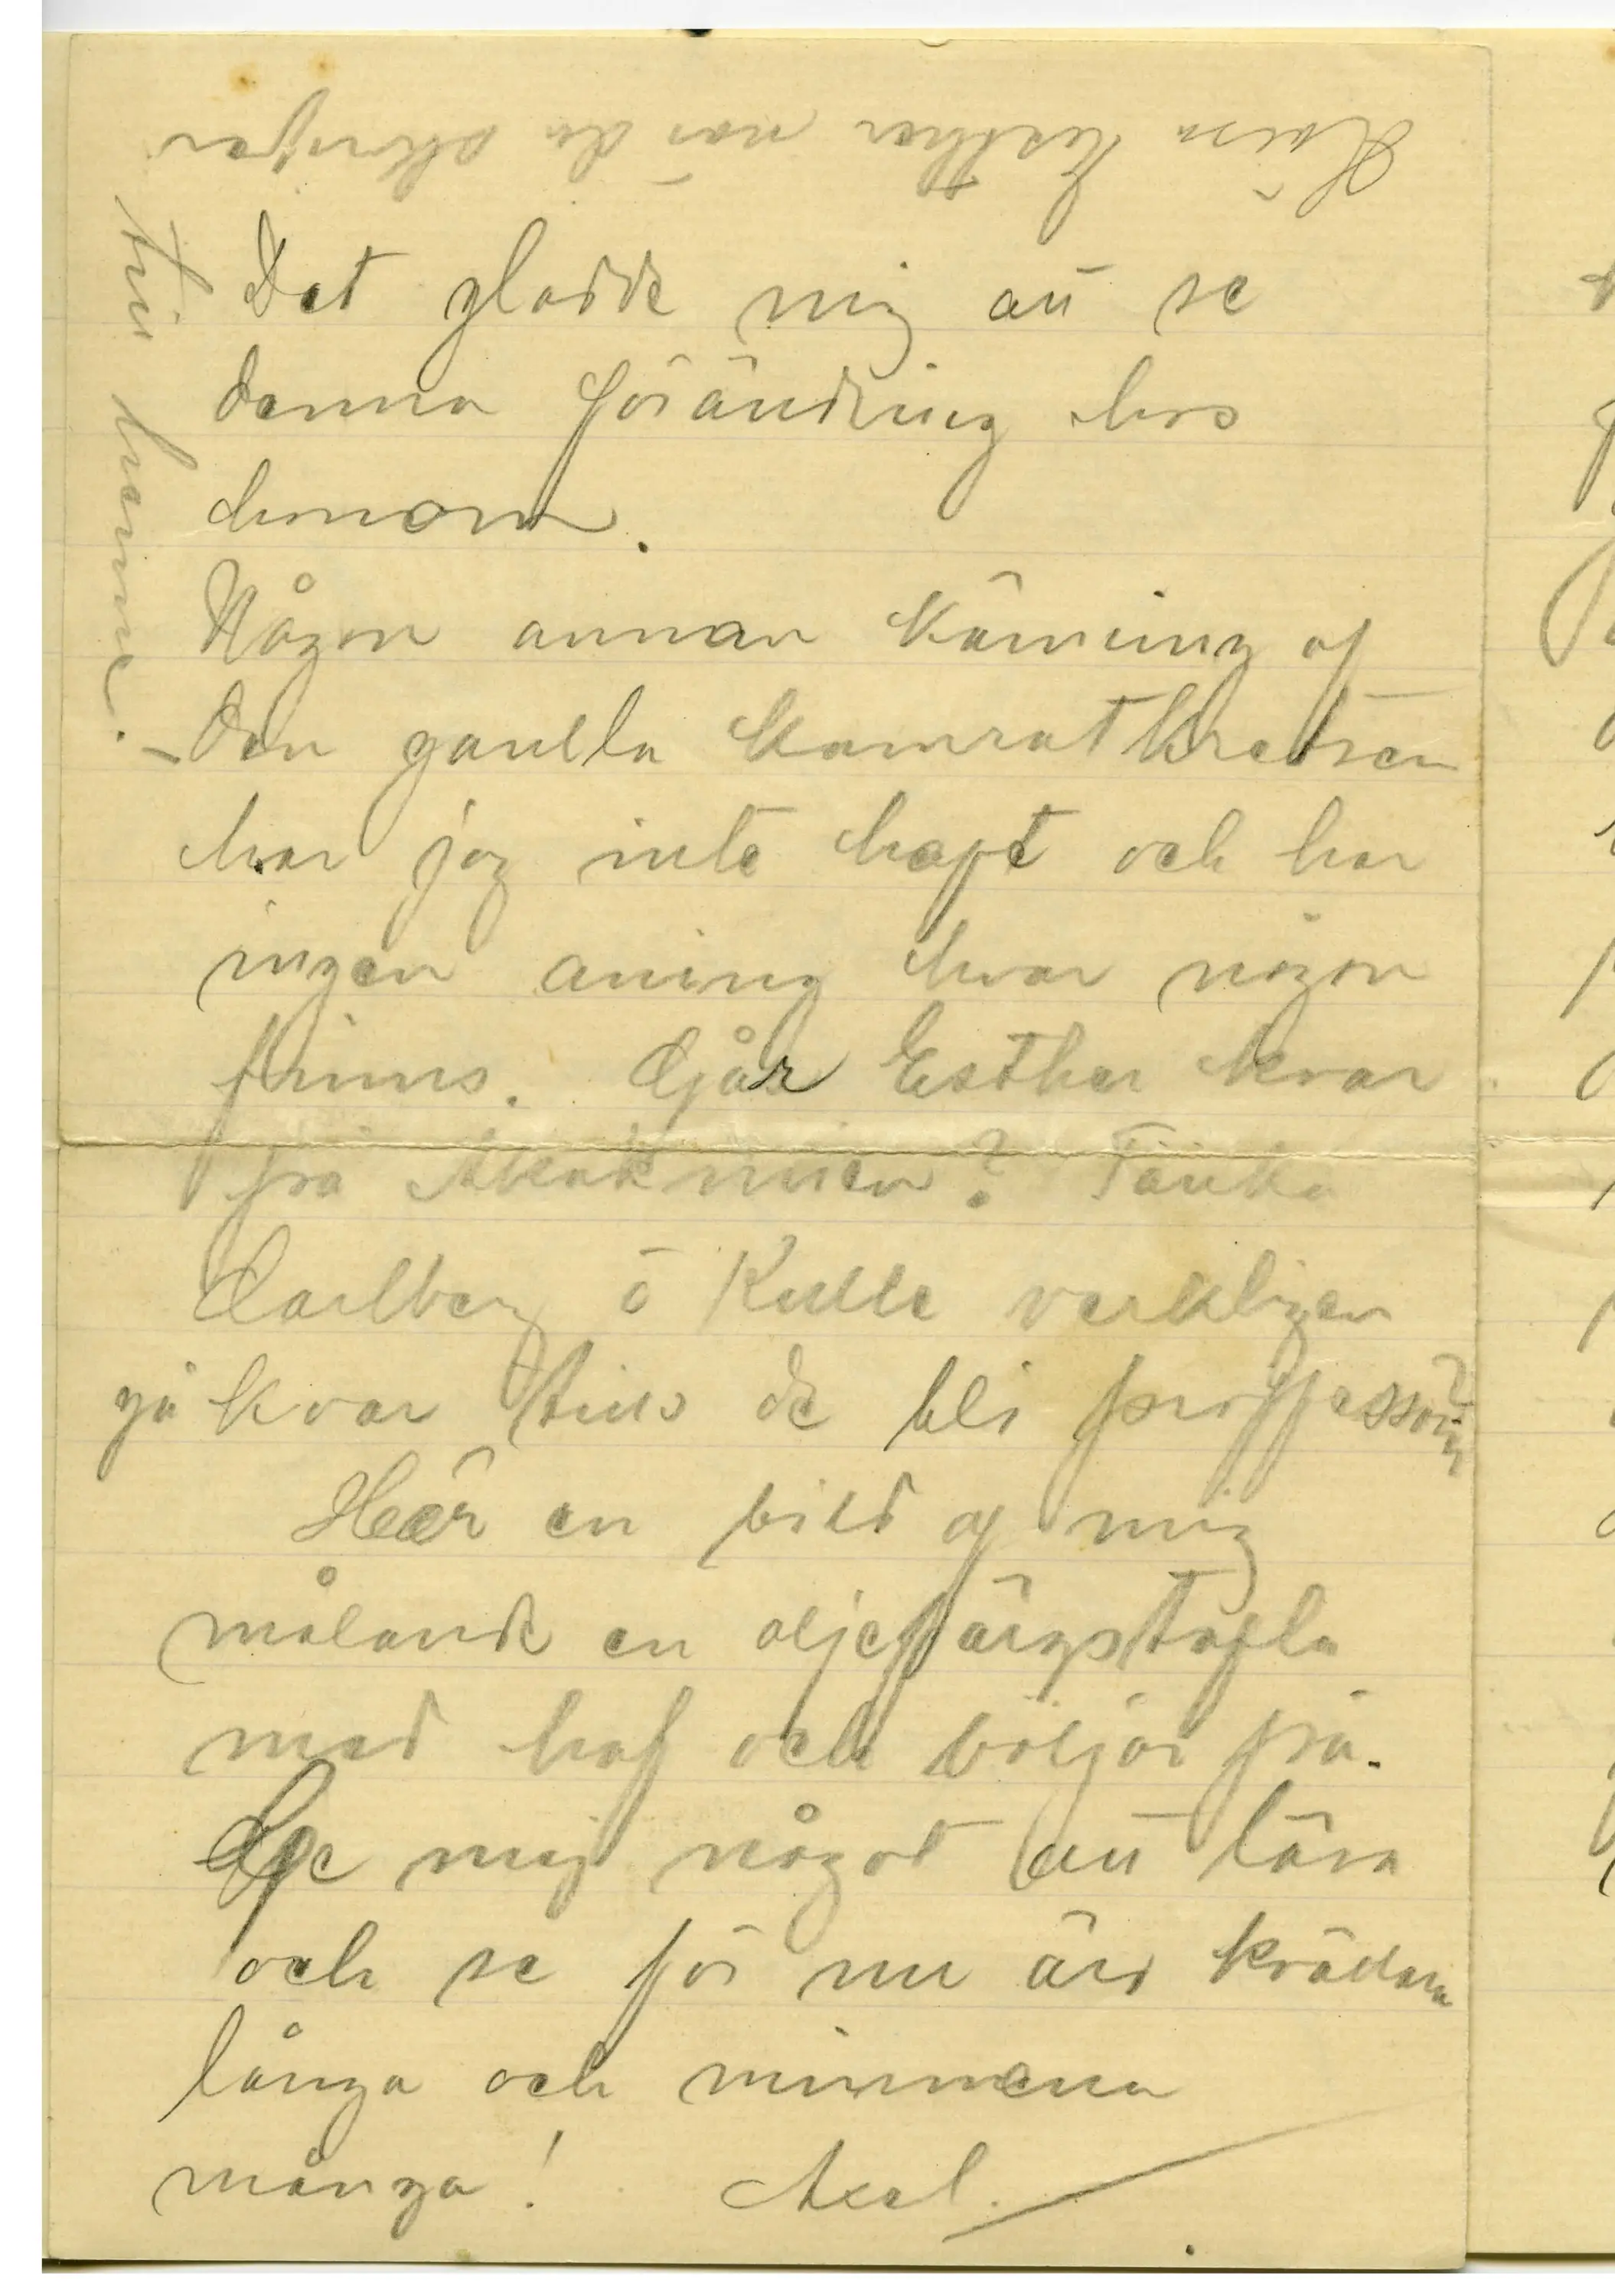 Det gladde mig att se
denna förändring hos
honom.
Någon annan känning af
den gamla kamratkretsen
har jag inte haft och har
ingen aning hvar någon
finns. Går Esther kvar
på Akademien? Tänka
Carlberg o Kulle verkligen
gå kvar tills de bli proffessorer?
Här en bild af mig
målande en oljefärgstafla
med haf och böljor på.
Ge mig något att läsa
och se för nu äro kvällarna
långa och minnena
många! Axel.
Hälsa Esther när du skrifver
till henne.